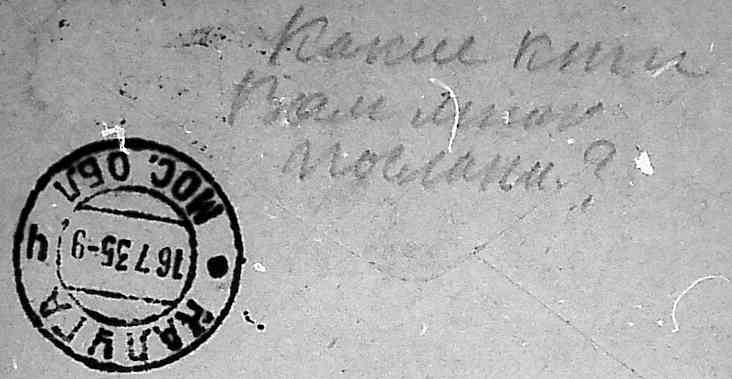 Какие книги
Вам мною
посланы?
МОС. ОБЛ
16 7 35-9
Ч
КАЛУГА